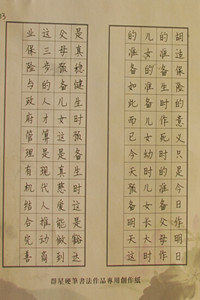 胡适保险的意义只是今日作明日
的准备生时作死时的准备父母作
儿女的准备儿女幼时作儿女长大时
的准备如此而已今天预备明天这
是真稳健生时预备死时这是真豁达
父母预备儿女这是真慈爱能做到
这三步的人才算是现代人推动商
业保险与政府管理有机结合完善
群星硬筆書法作品專用創作紙